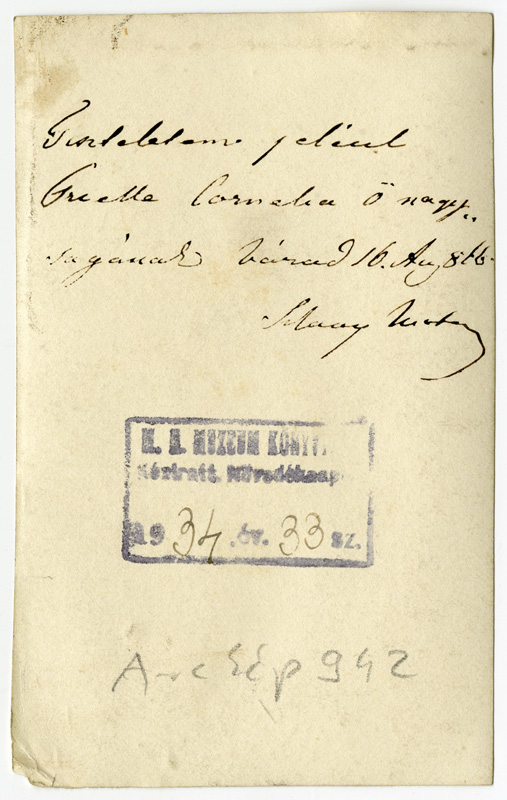 Tiszteletem jeléül
Prielle Cornelia Ő nagy„
ságának Várad 16. Aug 866.
M. N. MUZEUM KÖNYVT
Kéziratt. Növedéknap
19 34 .év. 33 sz.
Arckép 942